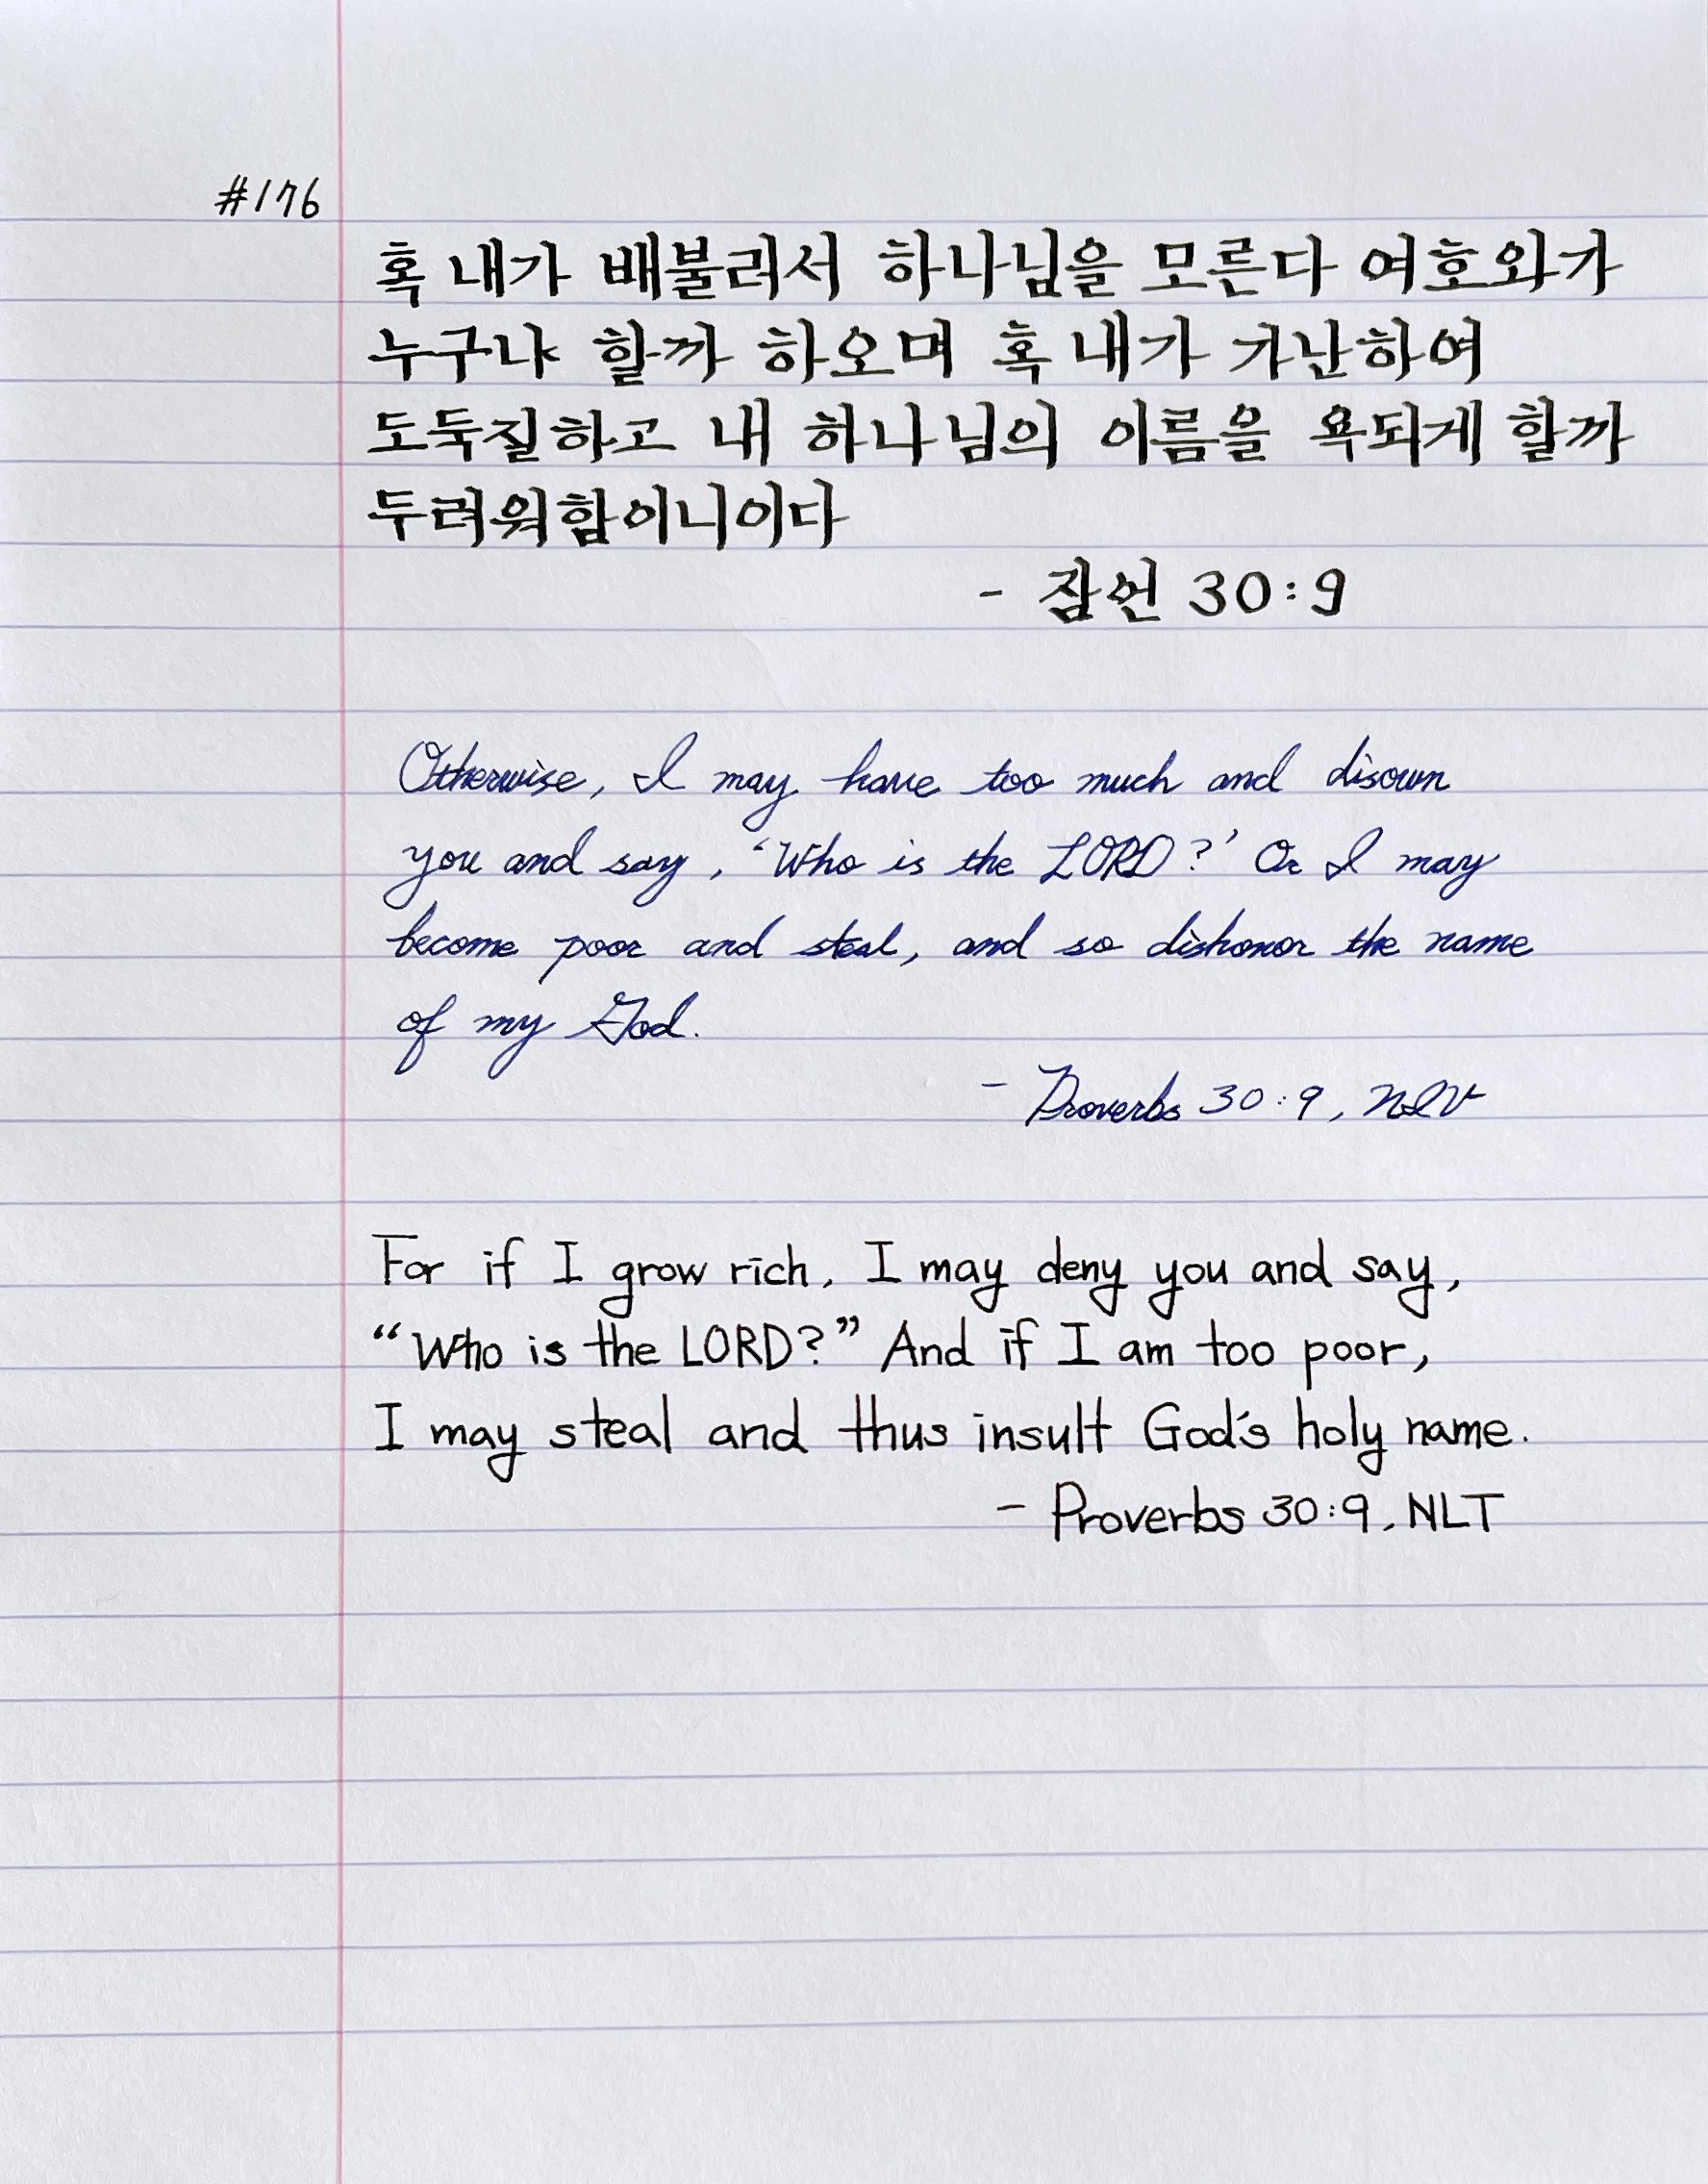 #176
혹 내가 배불러서 하나님을 모른다 여호와가
누구냐 할까 하오며 혹 내가 가난하여
도둑질하고 내 하나님의 이름을 욕되게 할까
두려워함이니이다
- 잠언 30:9
Otherwise, I may have too much and disown
you and say, ‘Who is the LORD?’ Or I may
become poor and steal, and so dishonor the name
of my God.
- Proverbs 30:9, NIV
For if I grow rich, I may deny you and say,
“Who is the LORD?” And if I am too poor,
I may steal and thus insult God's holy name.
- Proverbs 30:9, NLT